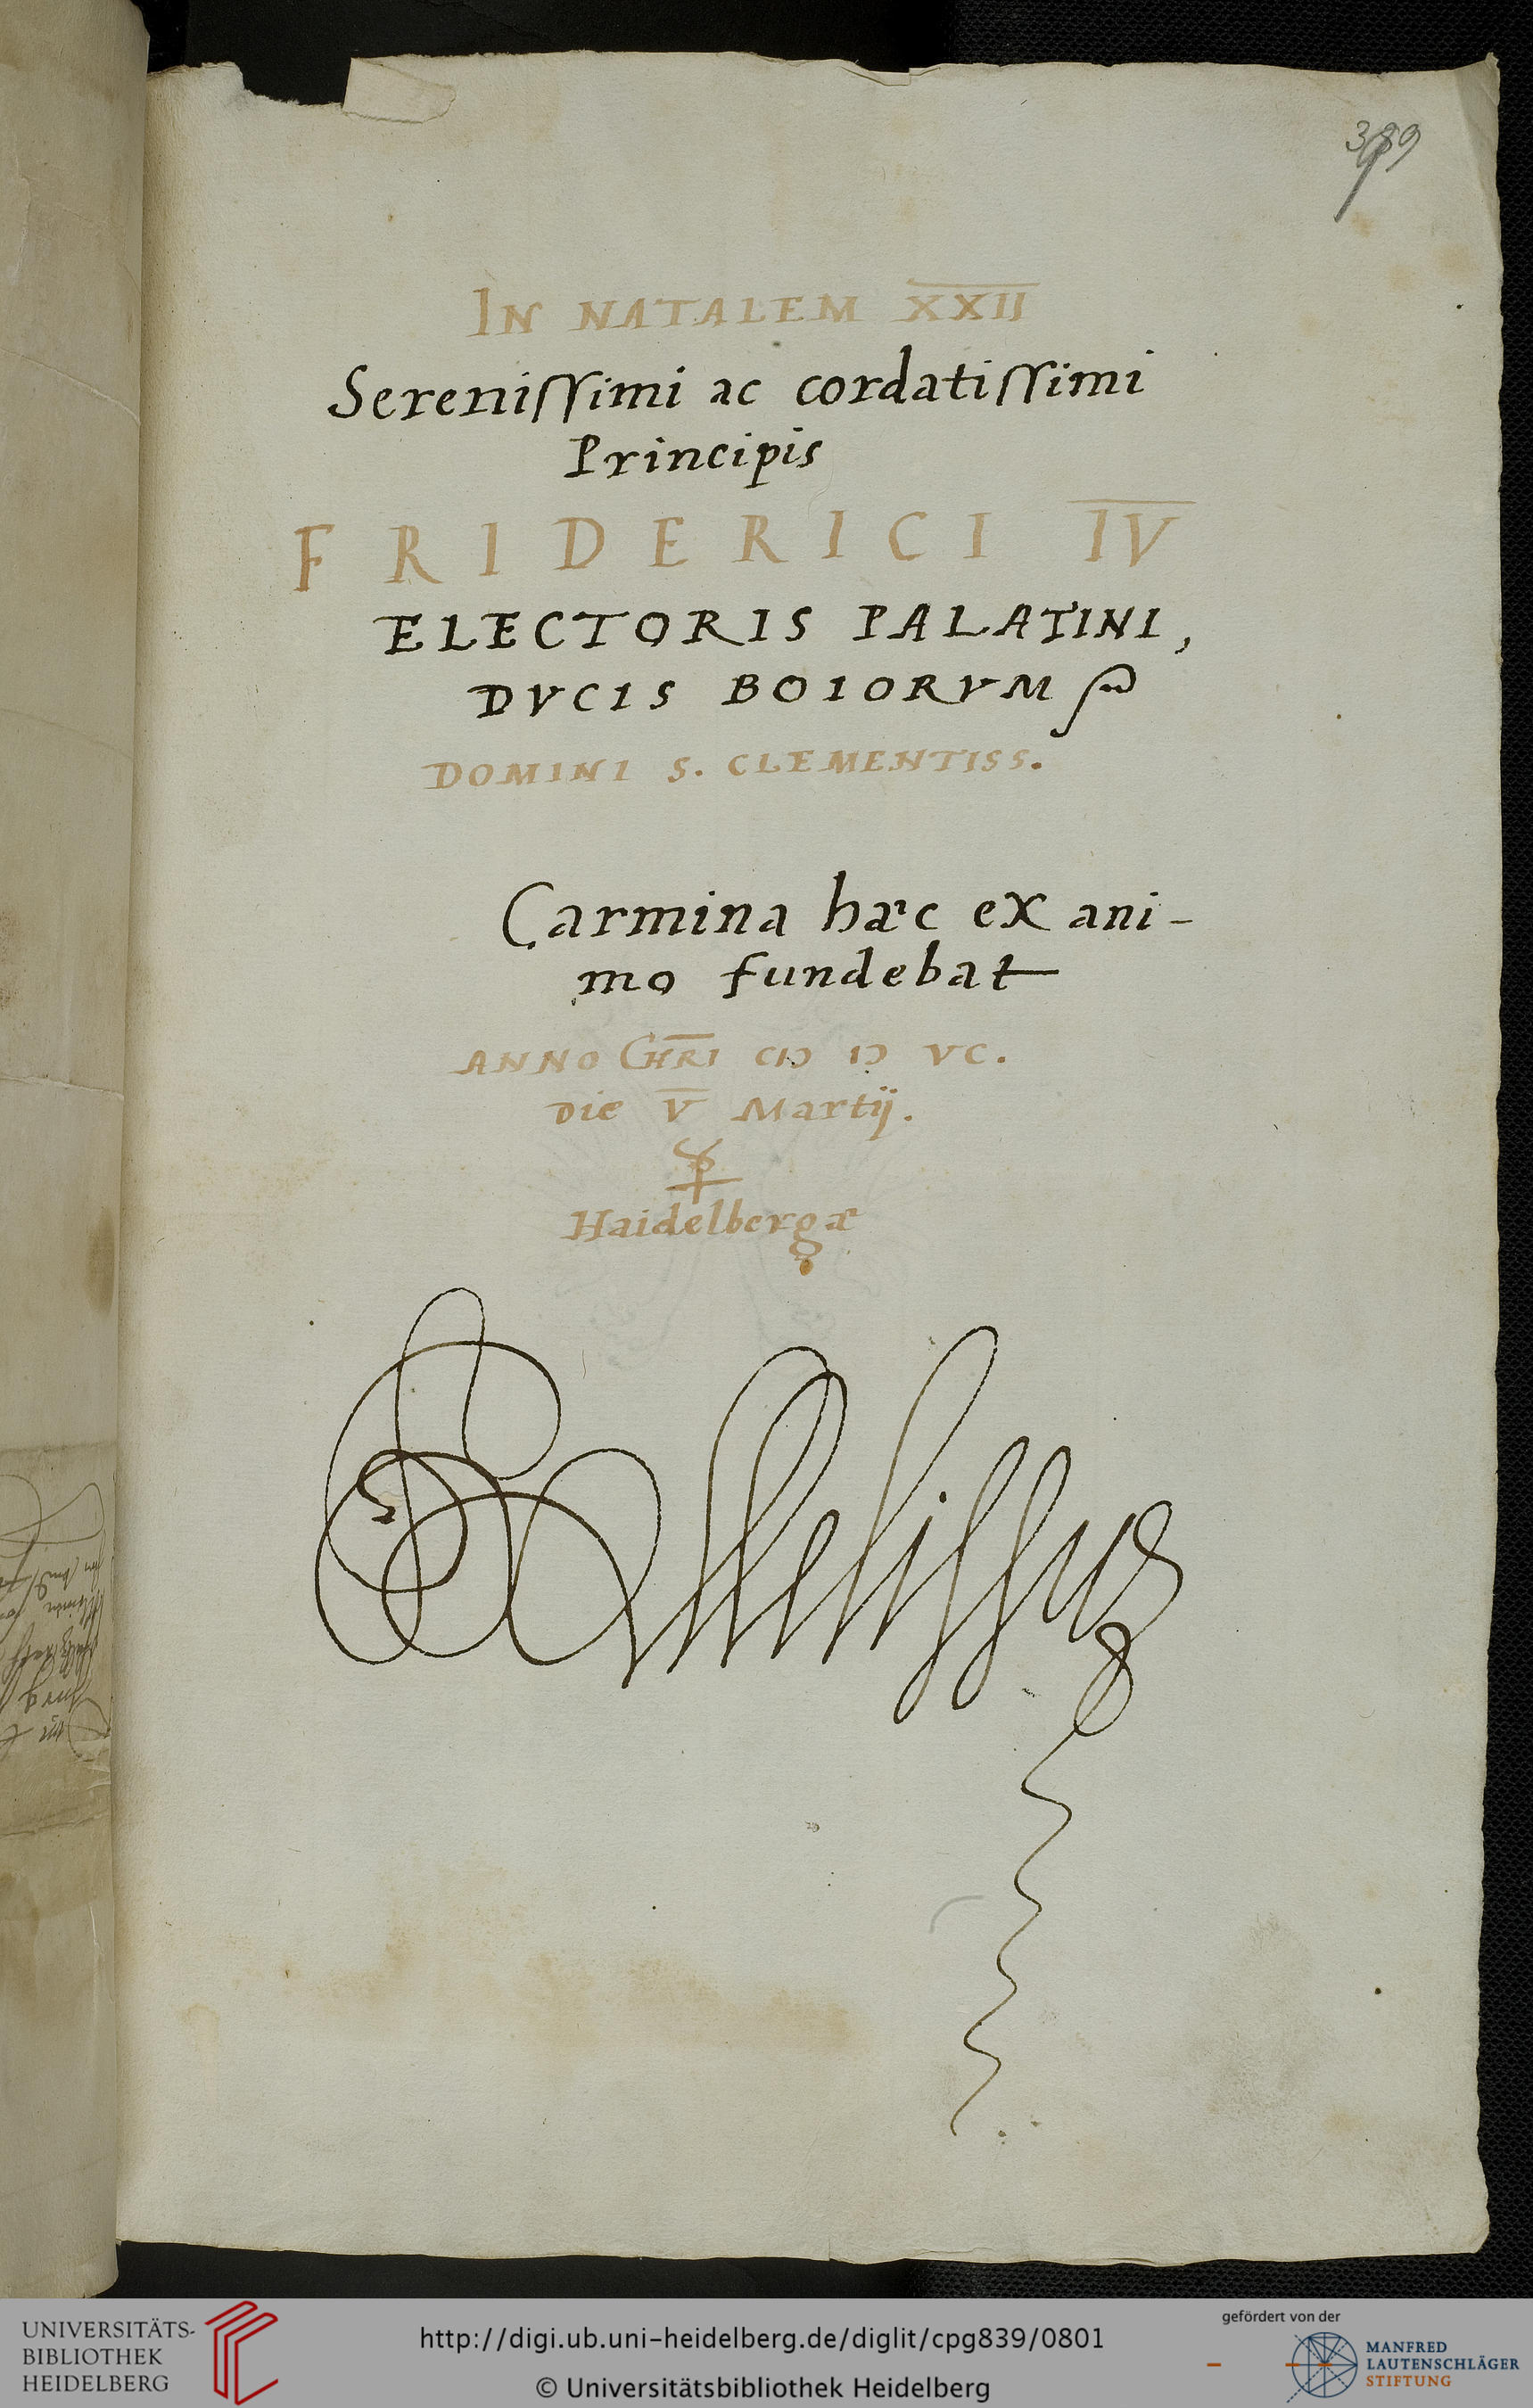 389
IN NATALEM XXII
Sereniſſimi ac cordatiſſimi
Principis
FRIDERICI IV
ELECTORIS PALATINI,
DVCIS BOIORVM
DOMINI S. CLEMENTISS.
Carmina hæc ex ani-
mo fundebat
ANNO CHRI CIↃ IↃ VC.
die V Martij.
Haidelbergæ
Melissus
UNIVERSITÄTS-
BIBLIOTHEK
HEIDELBERG
http://digi.ub.uni-heidelberg.de/diglit/cpg839/0801
© Universitätsbibliothek Heidelberg
gefördert von der
MANFRED
LAUTENSCHLÄGER
STIFTUNG